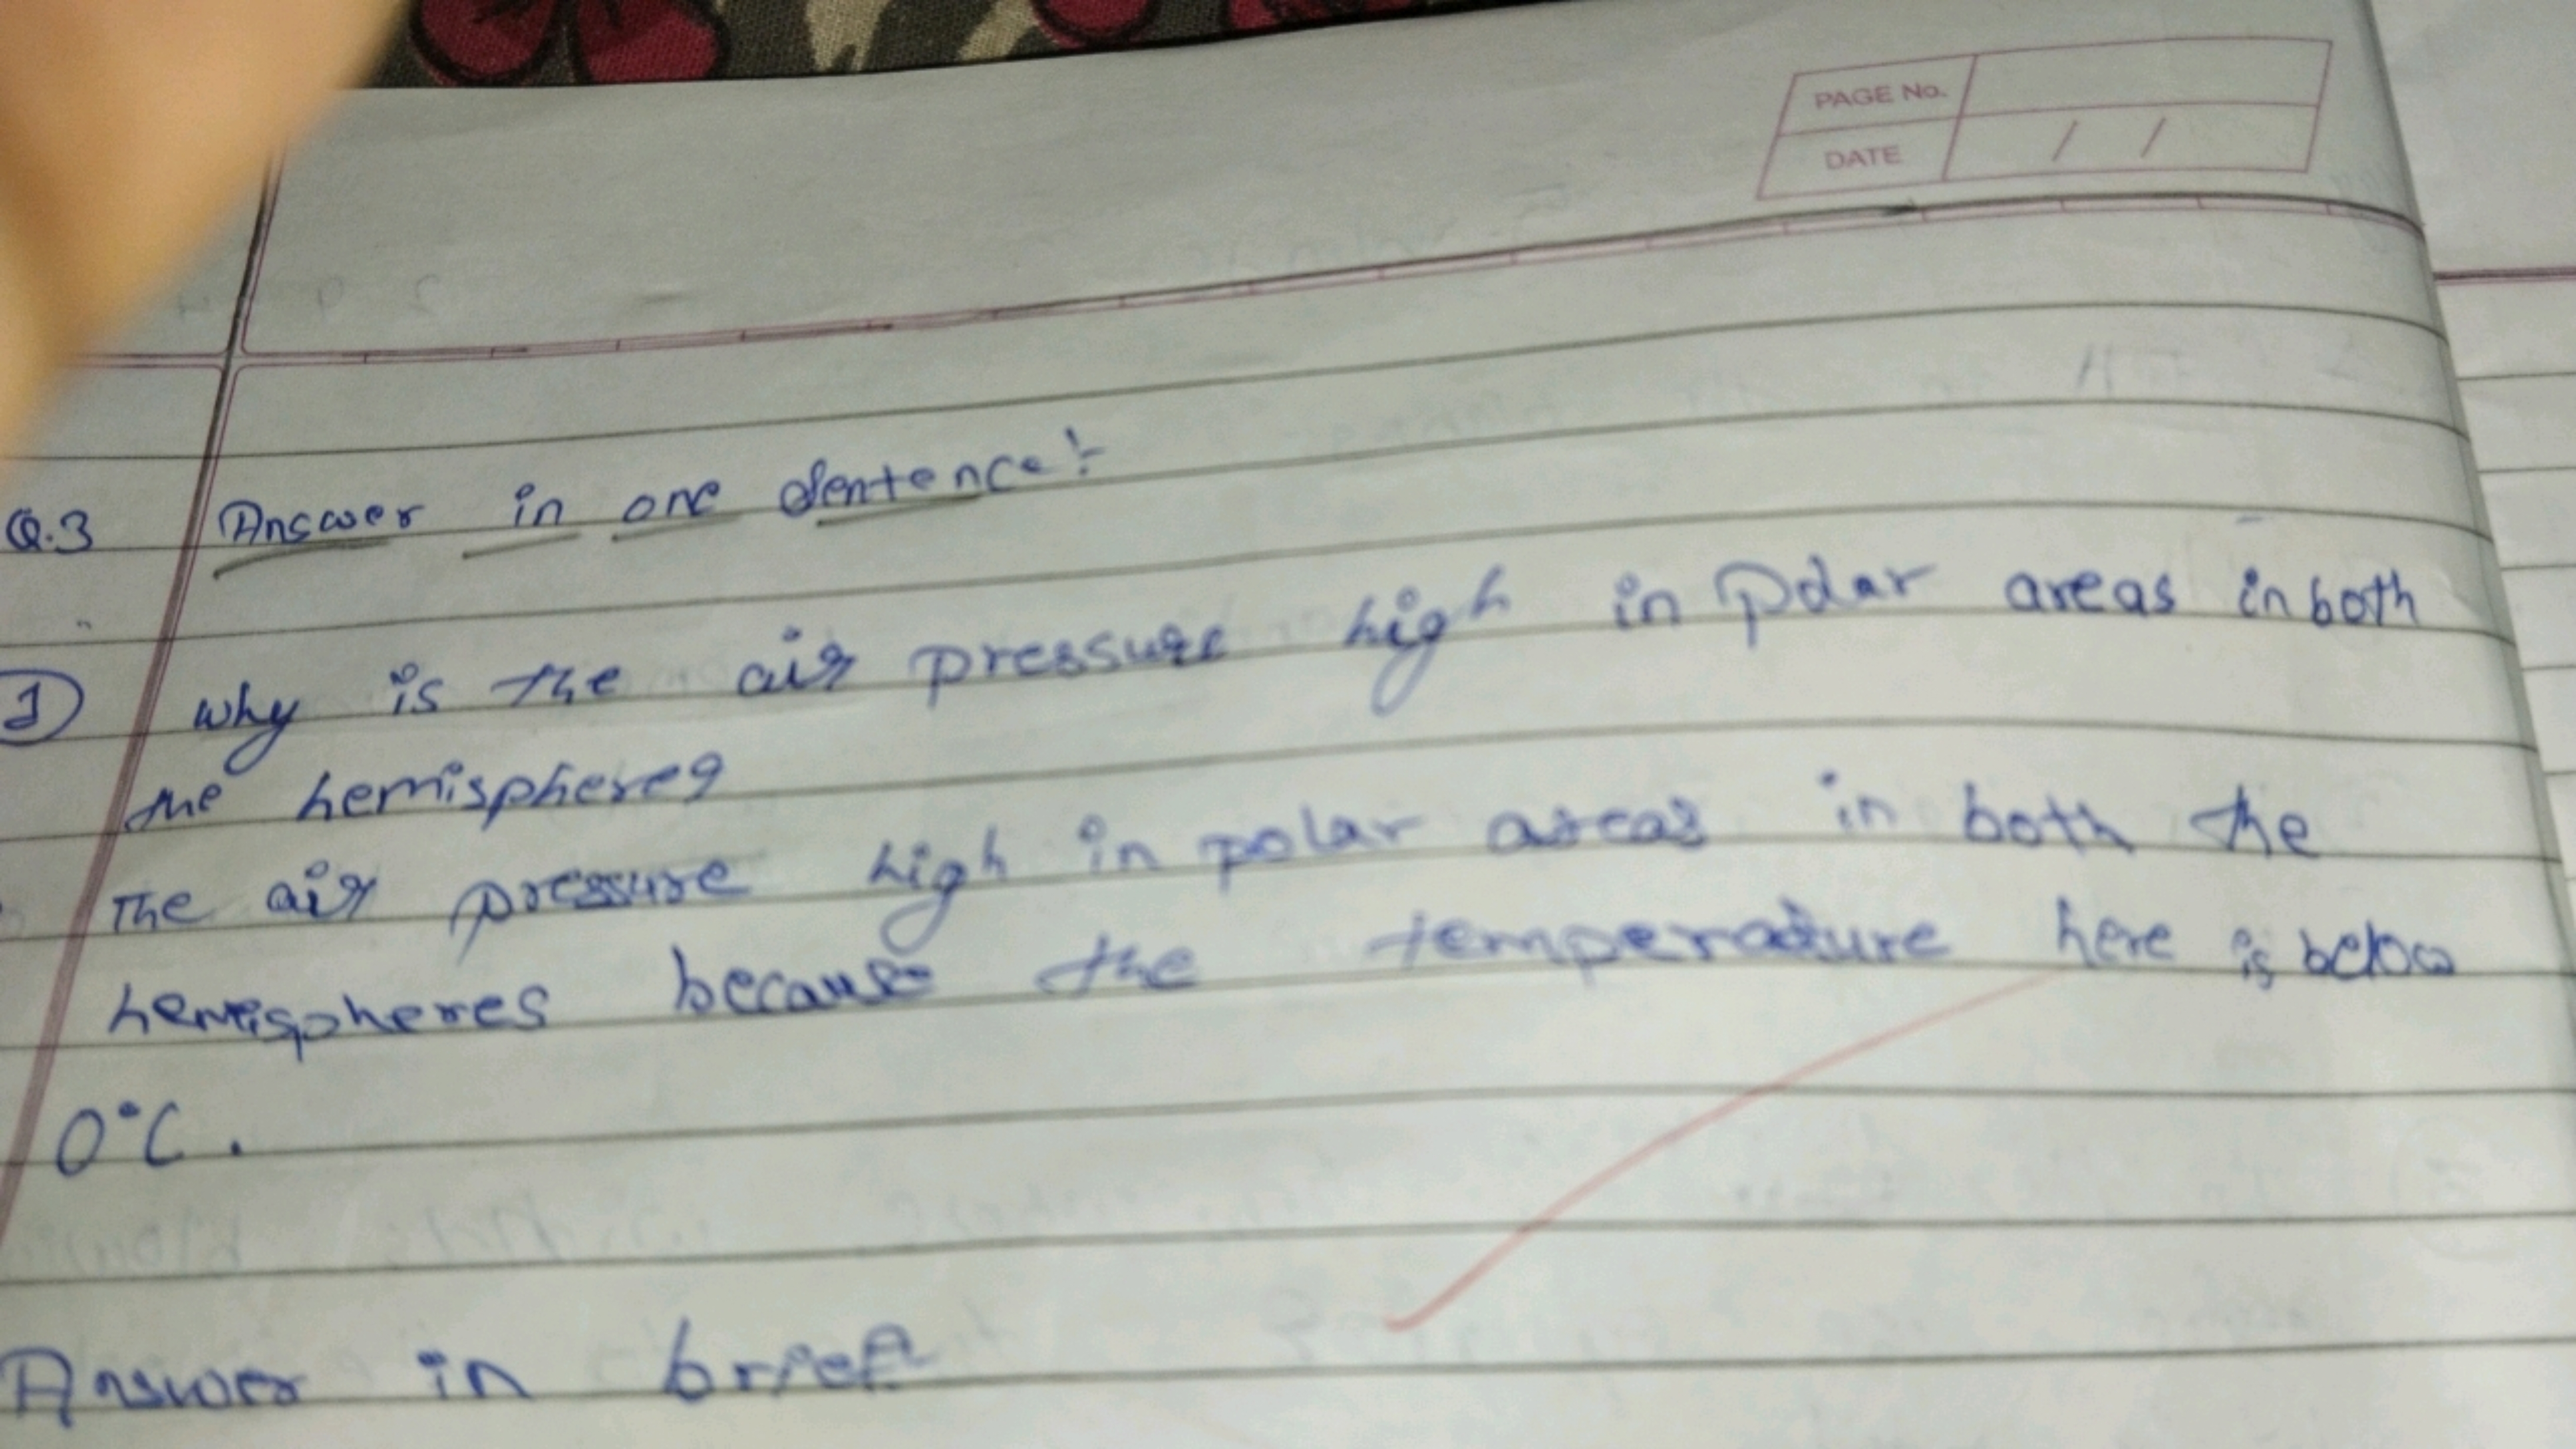 PAGE No.
DATE / /
Q.3 Answer in one Sentence:-
1 why is the air pressure high in Polar areas in both
the hemisphere?
The air pressure high in polar areas in both the
hemispheres because the temperature here is below
0°C.
Answer in brief